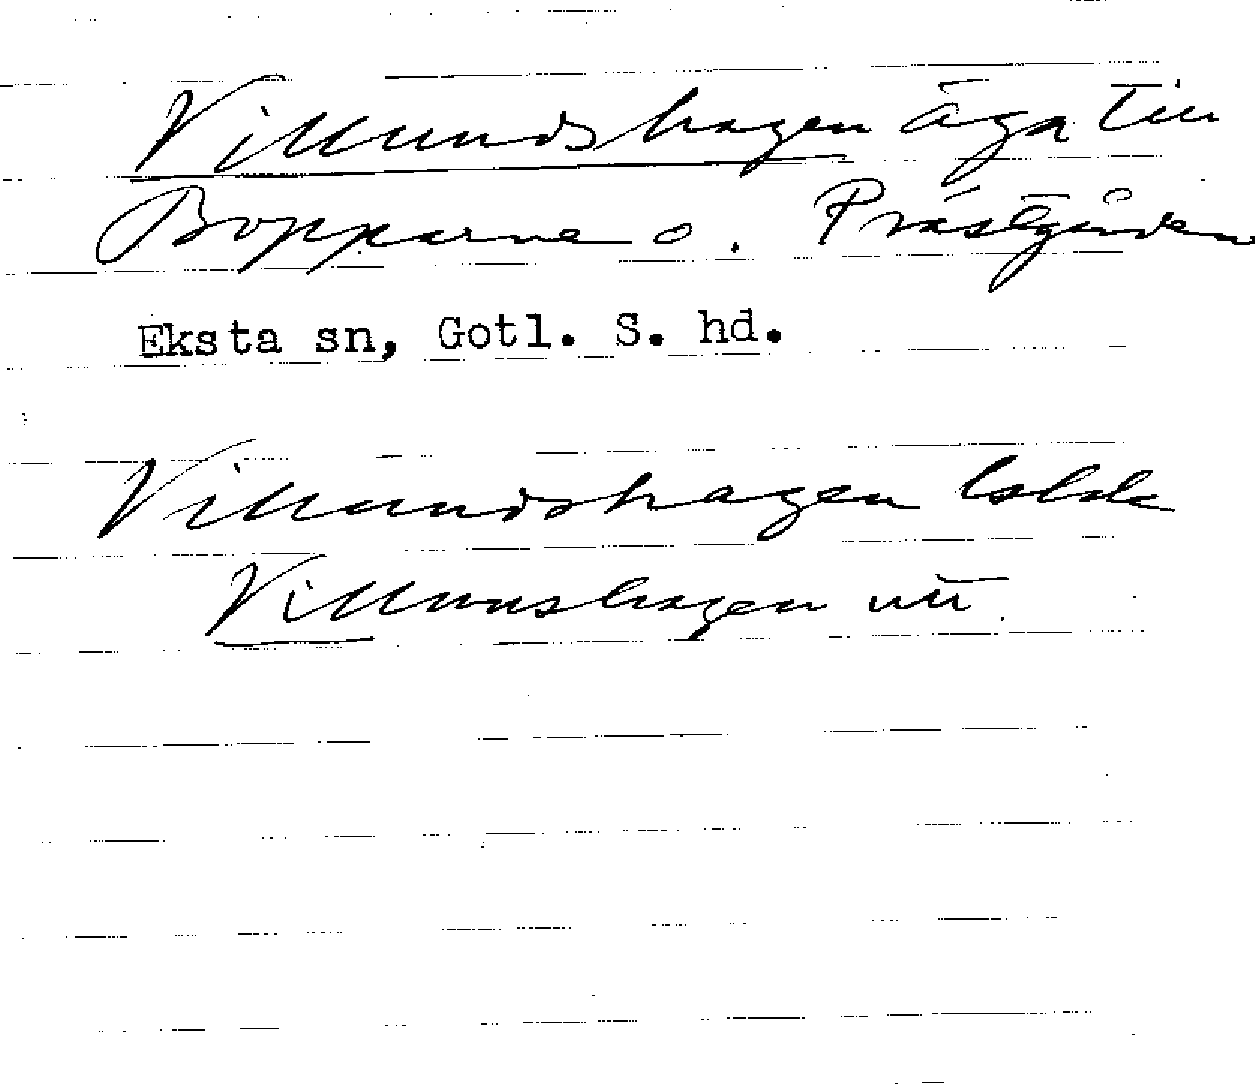 Villmundshagen äga till
Bopparve o. Prästgården
Eksta sn, Gotl. S. hd.
Villmundshagen
Villmunshagen utt.